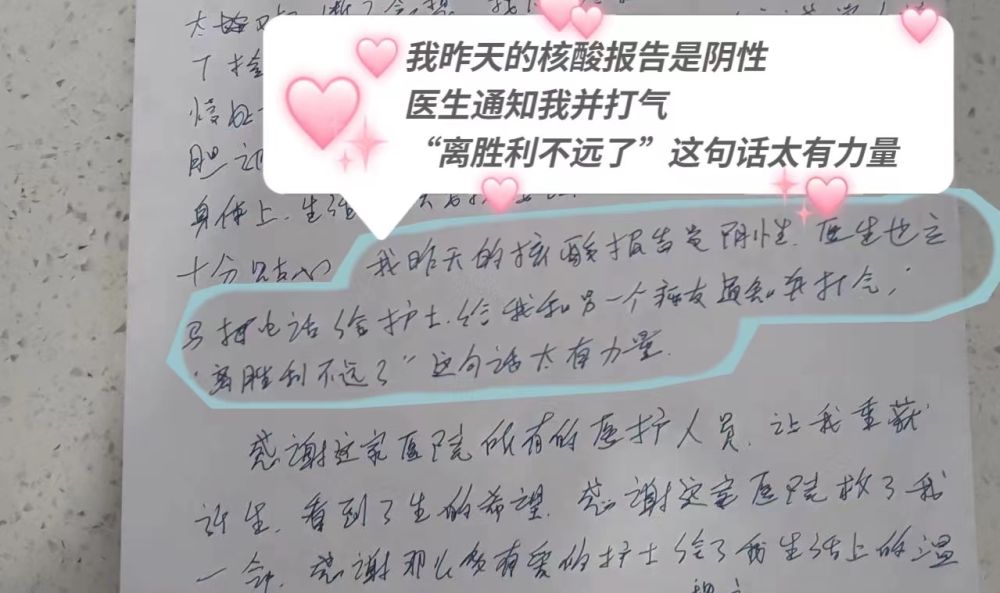 我昨天的核酸报告是阴性
医生通知我并打气
“离胜利不远了”这句话太有力量
太
下
胆
身体上.生活
十分贴心 我昨天的核酸报告是阴性.医生也立
马打电话给护士.给我和另一个病友通知并打气,
“离胜利不远了”这句话太有力量.
感谢这家医院所有的医护人员,让我重获
新生,看到了生的希望.感谢这家医院救了我
一命.感谢那么多有爱的护士给了我生活上的温